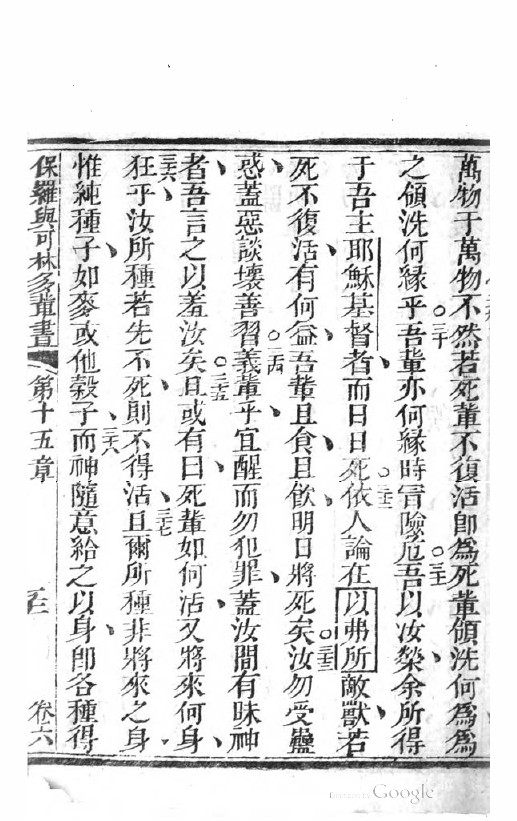 萬物于萬物不然若死輩不復活卽爲死輩領洗何爲爲
之領洗何緣乎○三十吾輩亦何緣時冐險危○三一吾以汝榮余所得
于吾主耶穌基督者而日日死○三二依人論在以弗所敵獸若
死不復活有何益吾輩且食且飲明日將死矣○三三汝勿受蠱
惑蓋惡談壞善習○三四義輩乎宜醒而勿犯罪蓋汝間有昧神
者吾言之以羞汝矣○三五且或有曰死輩如何活又將來何身
三六狂乎汝所種若先不死則不得活三七且爾所種非將來之身
惟純種子如麥或他穀子三八而神隨意給之以身卽各種得
保羅與可林多輩書 第十五章 卷六
Google